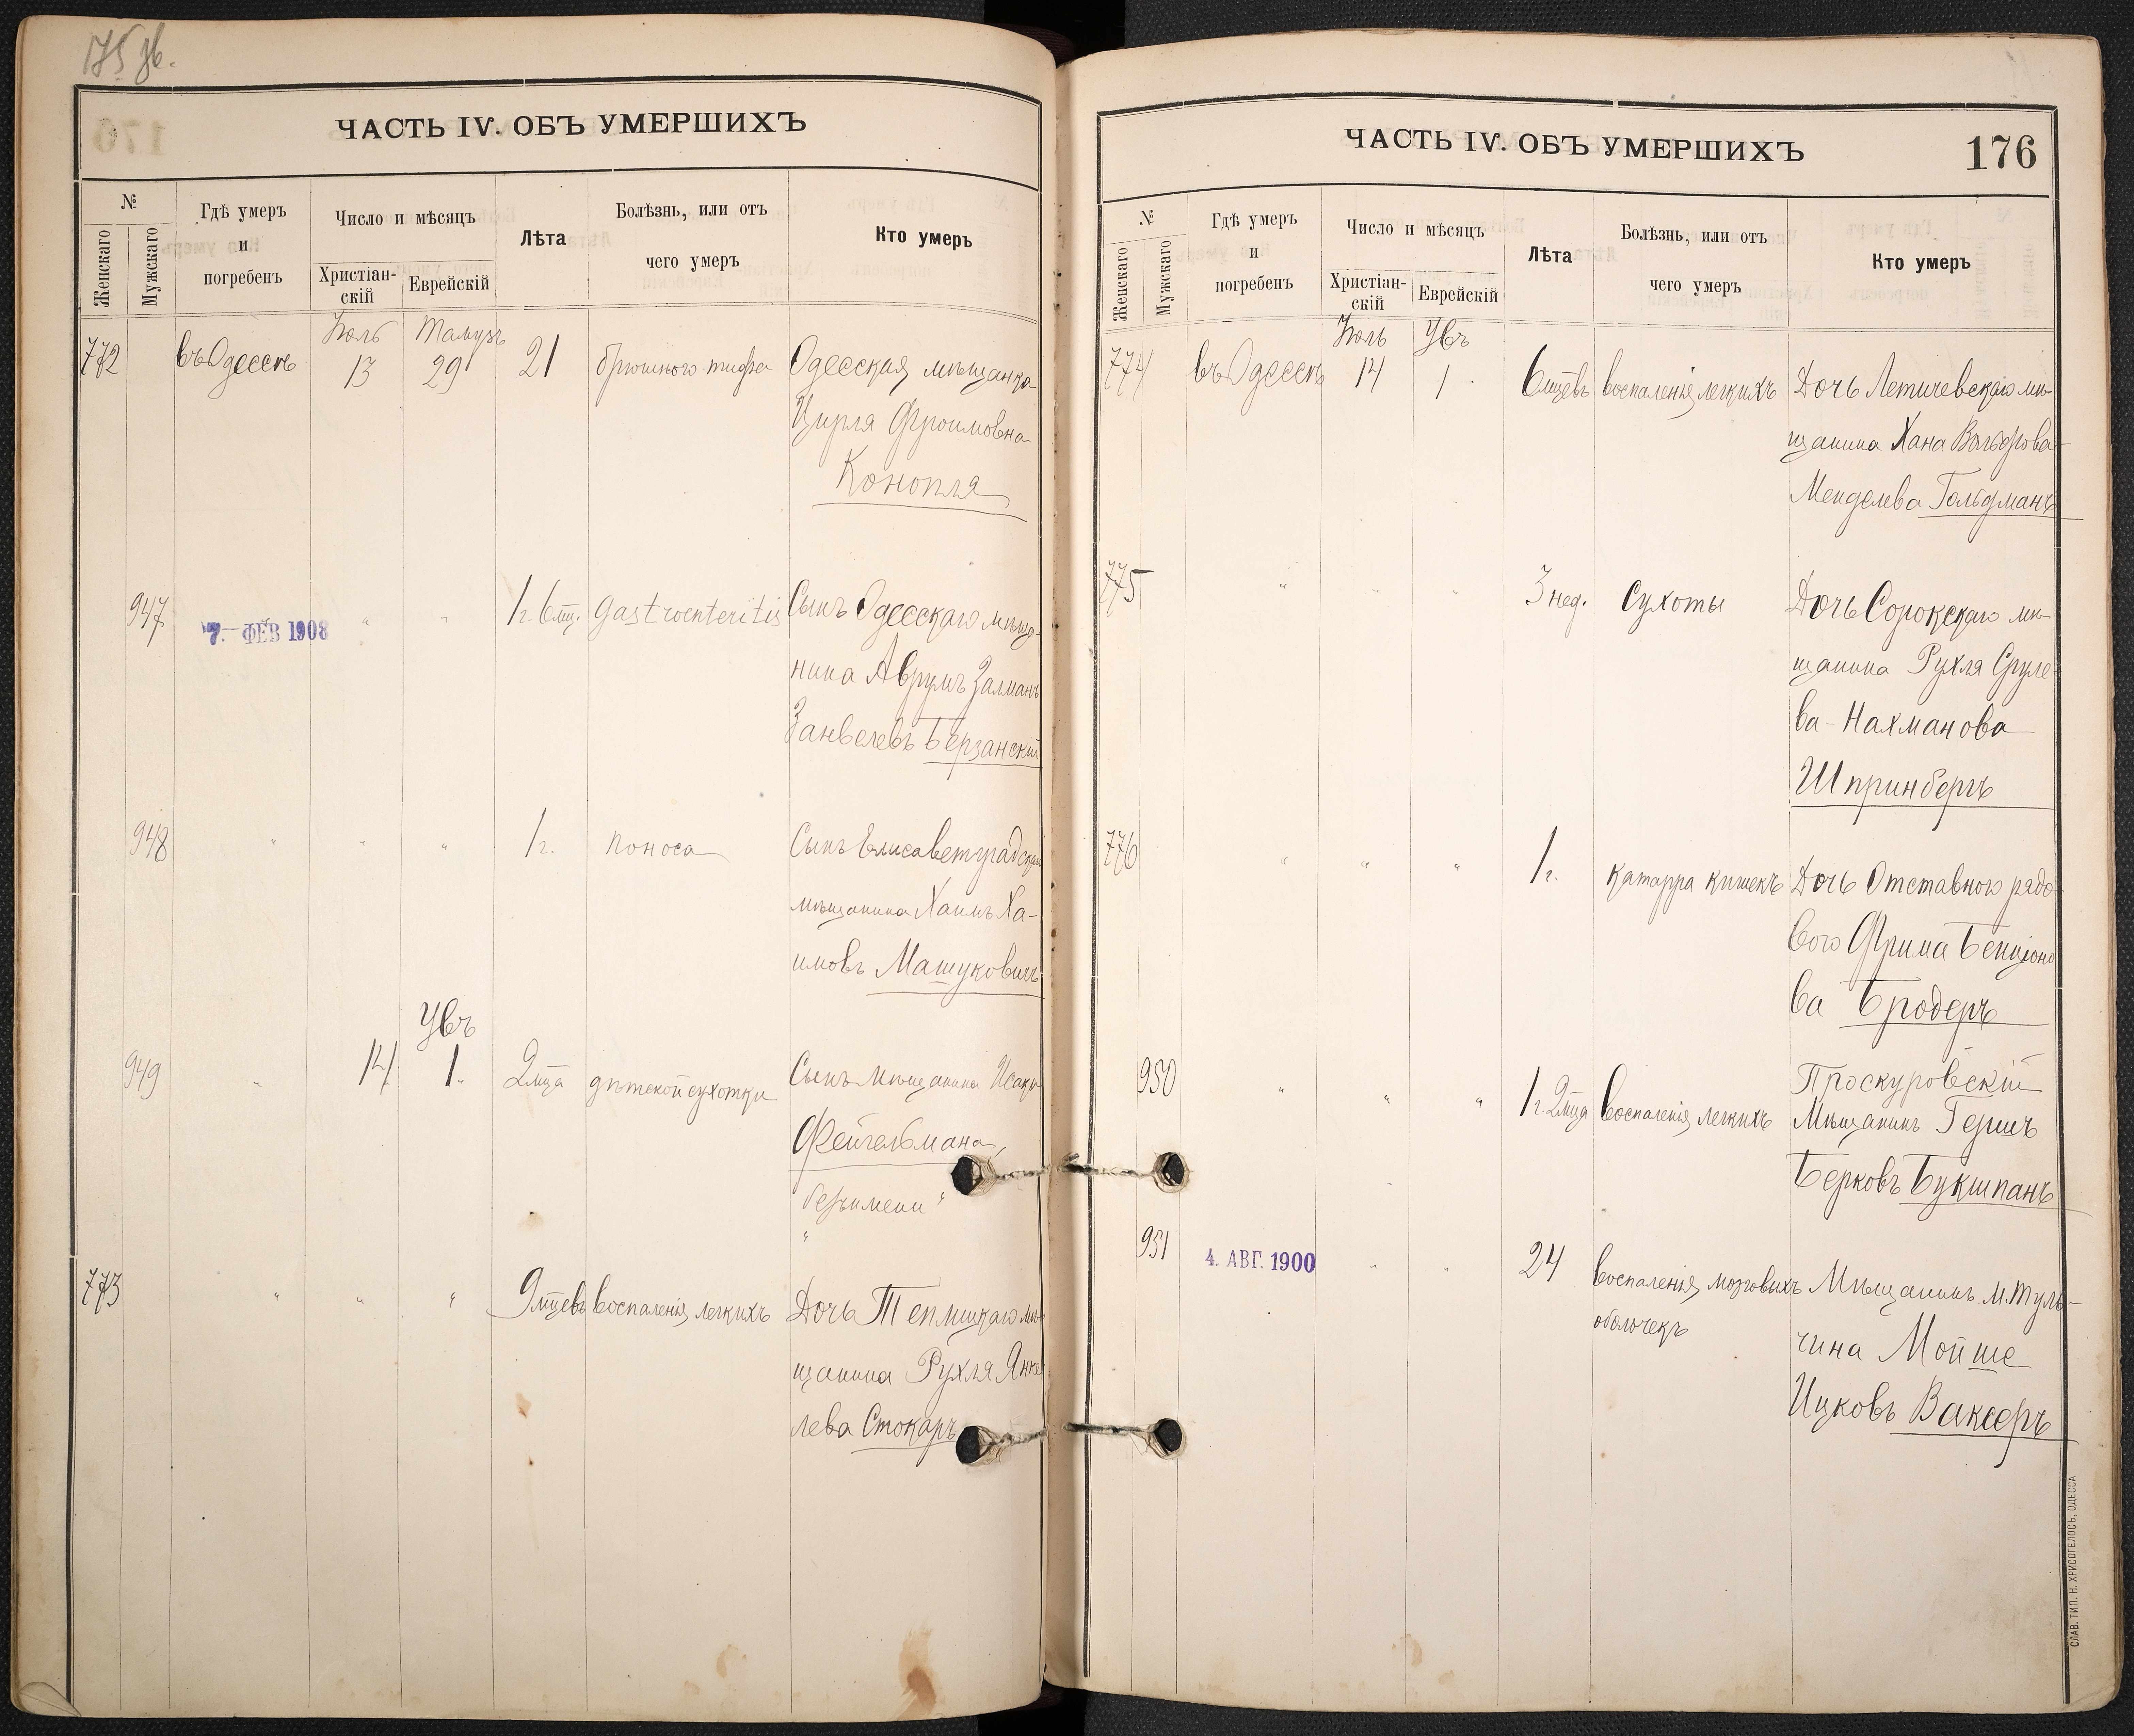 175 об.
ЧАСТЬ IV. ОБЪ УМЕРШИХЪ
№
Женскаго
Мужскаго
Гдѣ умеръ
и
погребенъ
Число и мѣсяцъ
Христіан-
скій
Еврейскій
Лѣта
Болѣзнь, или отъ
чего умеръ
Кто умеръ
Іюль Тамузъ
772 въ Одессѣ 13 29 21 брюшного тифа Одесская мѣщанка
Цирля Фроимовна
Конопля
947 7. ФЕВ 1908 " " 1 г. 6 мц. Gastroenteritis Сынъ Одесскаго мѣща-
нина Аврумъ Залманъ
Занвелевъ Берзанскій
948 " " " 1 г. поноса Сынъ Елисаветградскаго
мѣщанина Хаимъ Ха-
имовъ Машуковичъ
Увъ
949 " 14 1. 2 мца дѣтской сухотки Сынъ мѣщанина Исака
Фейгельмана,
безъ имени "
"
773 " " " 9 мцевъ воспаленія легкихъ Дочь Теплицкаго мѣ-
щанина Рухля Янке-
лева Стокаръ
ЧАСТЬ IV. ОБЪ УМЕРШИХЪ
176
№
Женскаго
Мужскаго
Гдѣ умеръ
и
погребенъ
Число и мѣсяцъ
Христіан-
скій
Еврейскій
Лѣта
Болѣзнь, или отъ
чего умеръ
Кто умеръ
Іюль Увъ
774 въ Одессѣ 14 1. 6 мцевъ воспаленія легкихъ Дочь Летичевскаго мѣ-
щанина Хана Вольфова-
Менделева Гольдманъ
775 " " " 3 нед. Сухоты Дочь Сорокскаго мѣ-
щанина Рухля Сруле-
ва-Нахманова
Шпринбергъ
776 " " " 1 г. катарра кишекъ Дочь Отставного рядо-
вого Фрима Бенціоно-
ва Бродеръ
950 " " " 1 г. 2 мца воспаленія легкихъ Проскуровскій
Мѣщанинъ Гершъ
Берковъ Букшпанъ
951 4. АВГ. 1900 " " 24 воспаленія мозговыхъ Мѣщанинъ м. Туль-
оболочекъ чина Мойше
Ицковъ Вакседръ
СЛАВ. ТИП. Н. ХРИСОГЕЛОСЪ, ОДЕССА